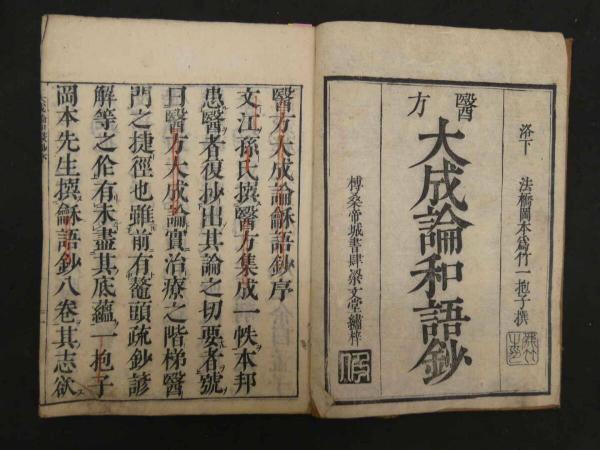 洛下　法橋岡本爲竹一抱子撰
醫方
大成論和語鈔
榑桑帝城書肆梁文堂繡梓
醫方大成論龢語鈔序
文江孫氏撰醫方集成一帙本邦
患醫者復抄出其論之切要者號
曰醫方大成論實治療之階梯醫
門之捷徑也雖前有鼇頭疏鈔諺
解等之作有未盡其底蘊一抱子
岡本先生撰龢語鈔八卷其志欲